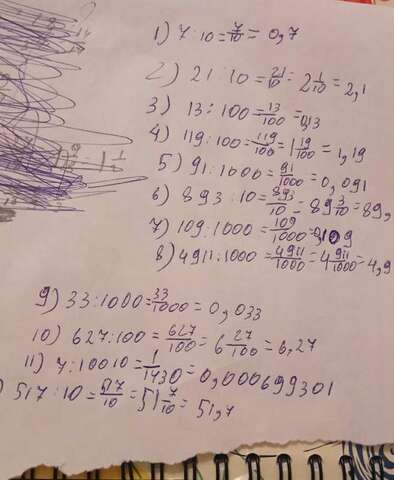 1) 7:10=7/10=0,7
2) 21:10=21/10=2 1/10=2,1
3) 13:100=13/100=0,13
4) 119:100=119/100=1 19/100=1,19
5) 91:1000=91/1000=0,091
6) 893:10=893/10=89 3/10=89,
7) 109:1000=109/1000=0,109
8) 4911:1000=4911/1000=4 911/1000=4,9
9) 33:1000=33/1000=0,033
10) 627:100=627/100=6 27/100=6,27
11) 7:10010=1/1430=0,000699301
) 517:10=517/10=51 7/10=51,7